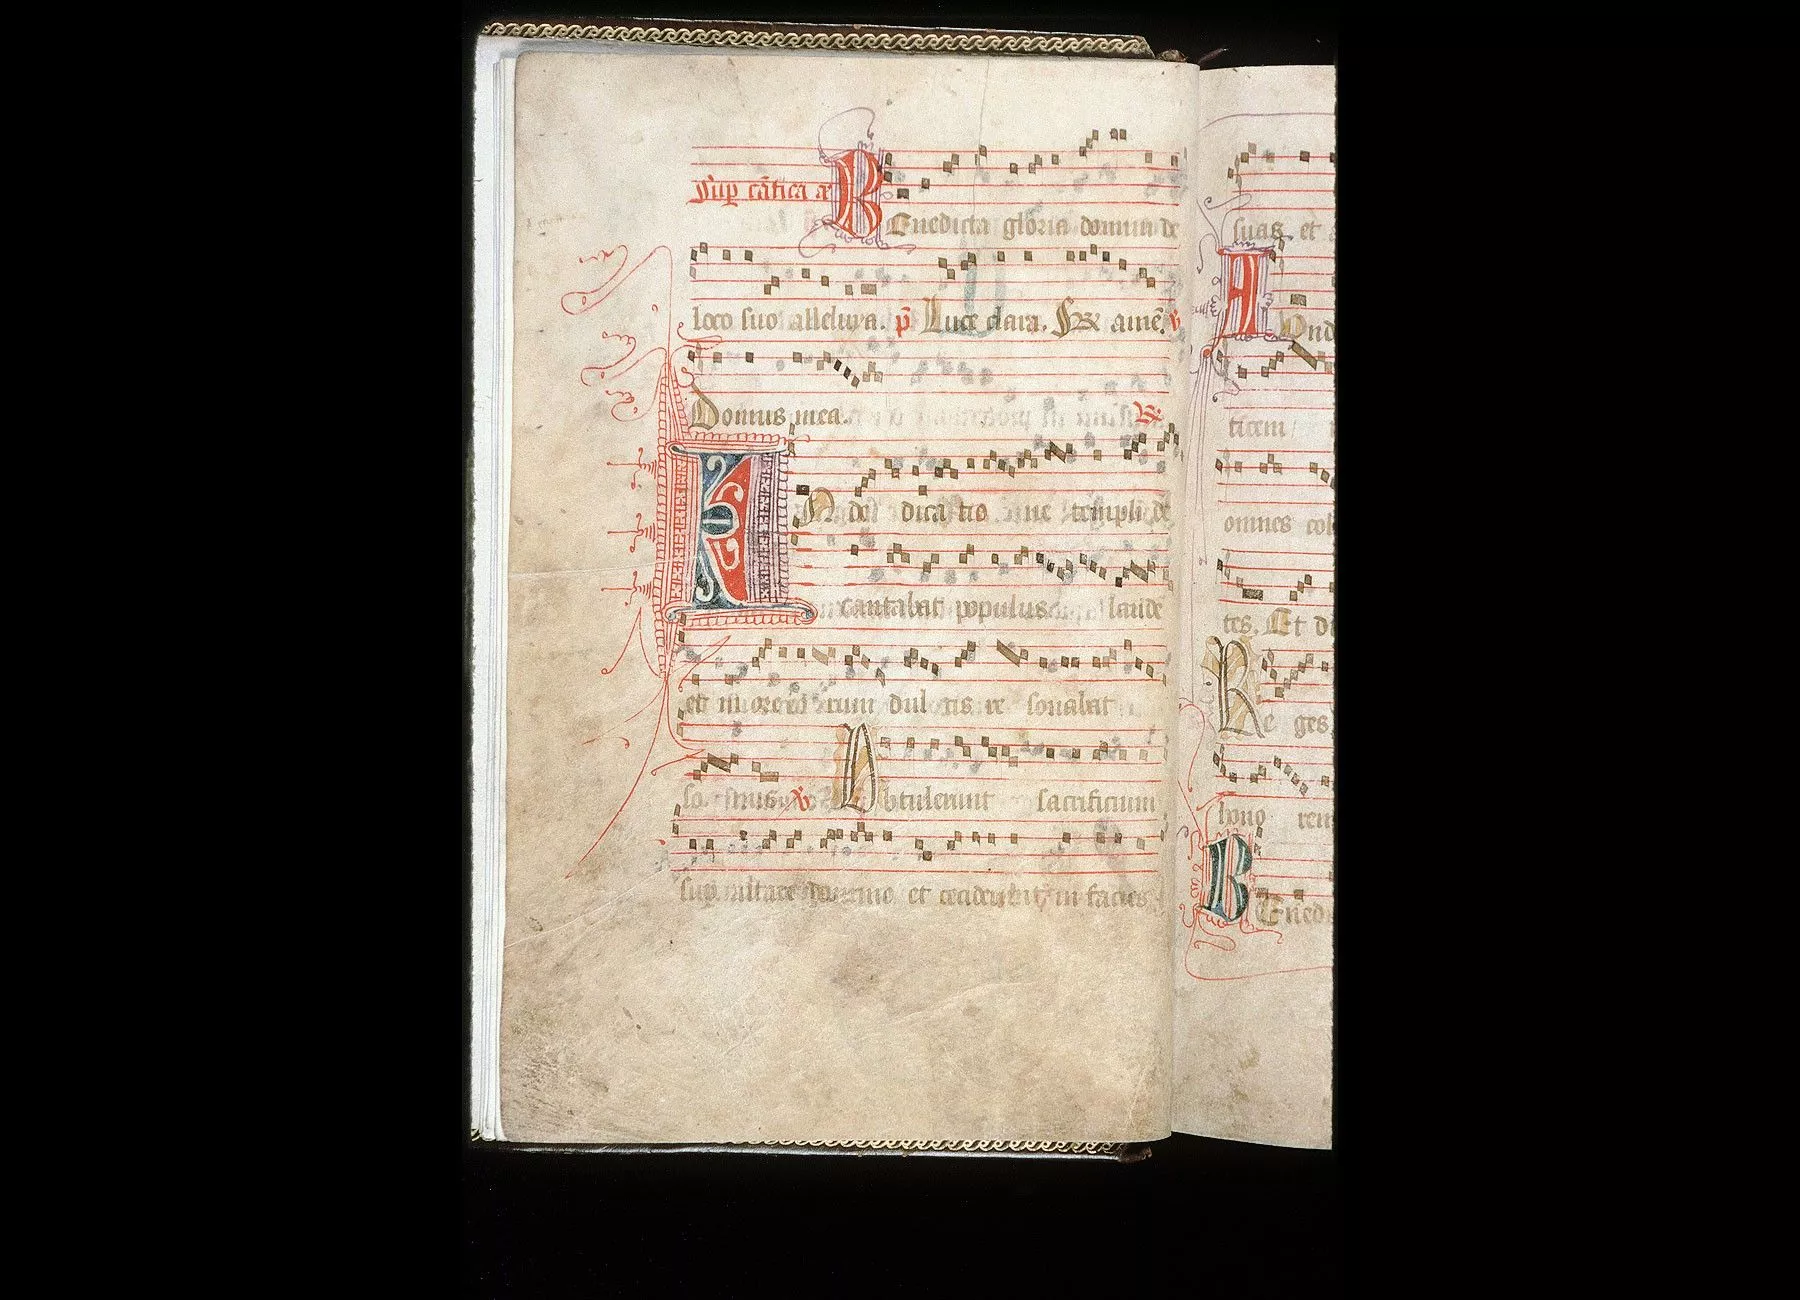 sup cãtica a
Benedicta gloria domini de
loco suo alleluya. p̄ Luce clara. amē. v
Domus mea.
In dedicatio ne templi de
cantabat populus laude
et in ore rum dulcis re sonabat
so nus v Obtulerunt sacrificium
sup altare domino et ceciderunt in facies
suas et
A Ond
ticem
omnes col
tes. Et di
Re ges
bono rem
Bened